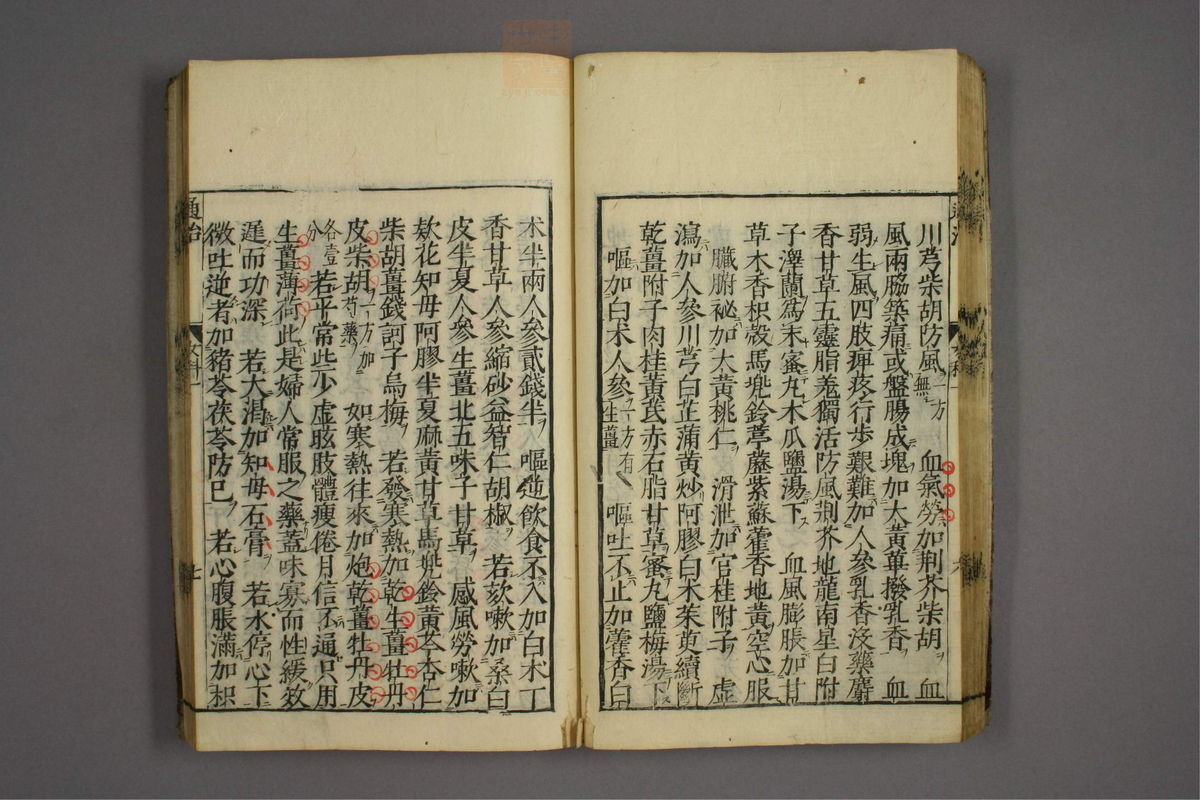 川芎柴胡防風一方無 血氣勞加荊芥柴胡 血
風兩脇築痛或盤腸成塊加大黃蓽撥乳香 血
弱生風四肢痺疼行步艱難加人參乳香沒藥麝
香甘草五靈脂羗獨活防風荊芥地龍南星白附
子澤蘭爲末蜜丸木瓜鹽湯下 血風膨脹加甘
草木香枳殼馬兠鈴葶藶紫蘇藿香地黃空心服
臟腑祕加大黃桃仁 滑泄加官桂附子 虛
瀉加人參川芎白芷蒲黃炒阿膠白朮茱萸續斷
乾薑附子肉桂黃芪赤石脂甘草蜜丸鹽梅湯下
嘔加白朮人參一方有生薑 嘔吐不止加藿香白
朮半兩人參貳錢半 嘔逆飲食不入加白朮丁
香甘草人參縮砂益智仁胡椒 若欬嗽加桑白
皮半夏人參生薑北五味子甘草 感風勞嗽加
欵花知母阿膠半夏麻黃甘草馬兠鈴黃芩杏仁
柴胡薑錢訶子烏梅 若發寒熱加乾生薑牡丹
皮柴胡一方加芍藥 如寒熱往來加炮乾薑牡丹皮
各壹分 若平常些少虛眩肢體瘦倦月信不通只用
生薑薄荷此是婦人常服之藥蓋味寡而性緩效
遲而功深 若大渴加知母石膏 若水停心下
微吐逆者加豬苓茯苓防巳 若心腹脹滿加枳
通治
女科一
七